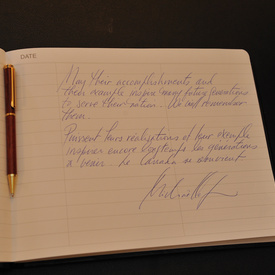 DATE:
May their accomplishments and
their example inspire many future generations
to serve their nation. We will remember
them.
Puissent leurs réalisations et leur exemple
inspirer encore longtemps les générations
à venir. Le Canada se souvient